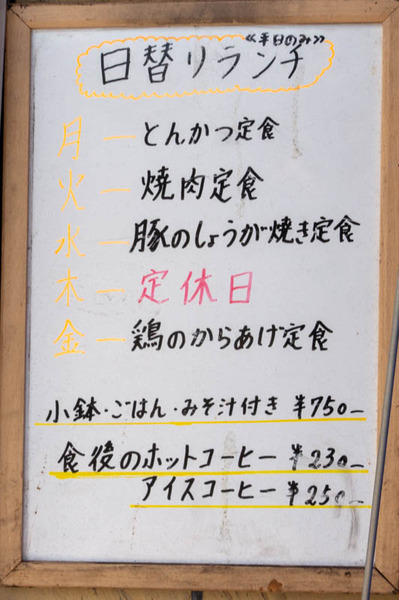 《平日のみ》
日替りランチ
月 — とんかつ定食
火 — 焼肉定食
水 — 豚のしょうが焼き定食
木 — 定休日
金 — 鶏のからあげ定食
小鉢・ごはん・みそ汁付き ¥750-
食後のホットコーヒー ¥230-
アイスコーヒー ¥250-